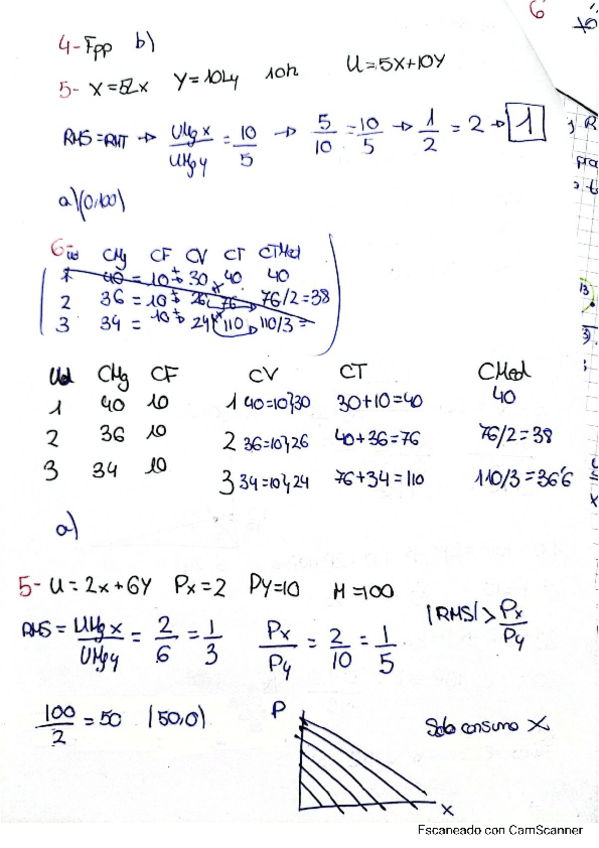 4- Fpp b)
5- X=5Lx Y=10Ly 10h U=5X+10Y
RMS=RMT → UMgx/UMgy = 10/5 → 5/10 = 10/5 → 1/2 = 2 → 1
a) (0,100)
6- ud CMg CF CV CT CTMed
1 40 = 10 + 30 40 40
2 36 = 10 + 26 76 76/2=38
3 34 = 10 + 24 110 110/3=
Ud CMg CF CV CT CMed
1 40 10 1 40=10+30 30+10=40 40
2 36 10 2 36=10+26 40+36=76 76/2=38
3 34 10 3 34=10+24 76+34=110 110/3=36'6
a)
5- U=2x+6Y Px=2 Py=10 M=100
RMS = UMgx/UMgy = 2/6 = 1/3 Px/Py = 2/10 = 1/5 |RMS|>Px/Py
100/2 = 50 (50,0) P Solo consumo X
X
Escaneado con CamScanner